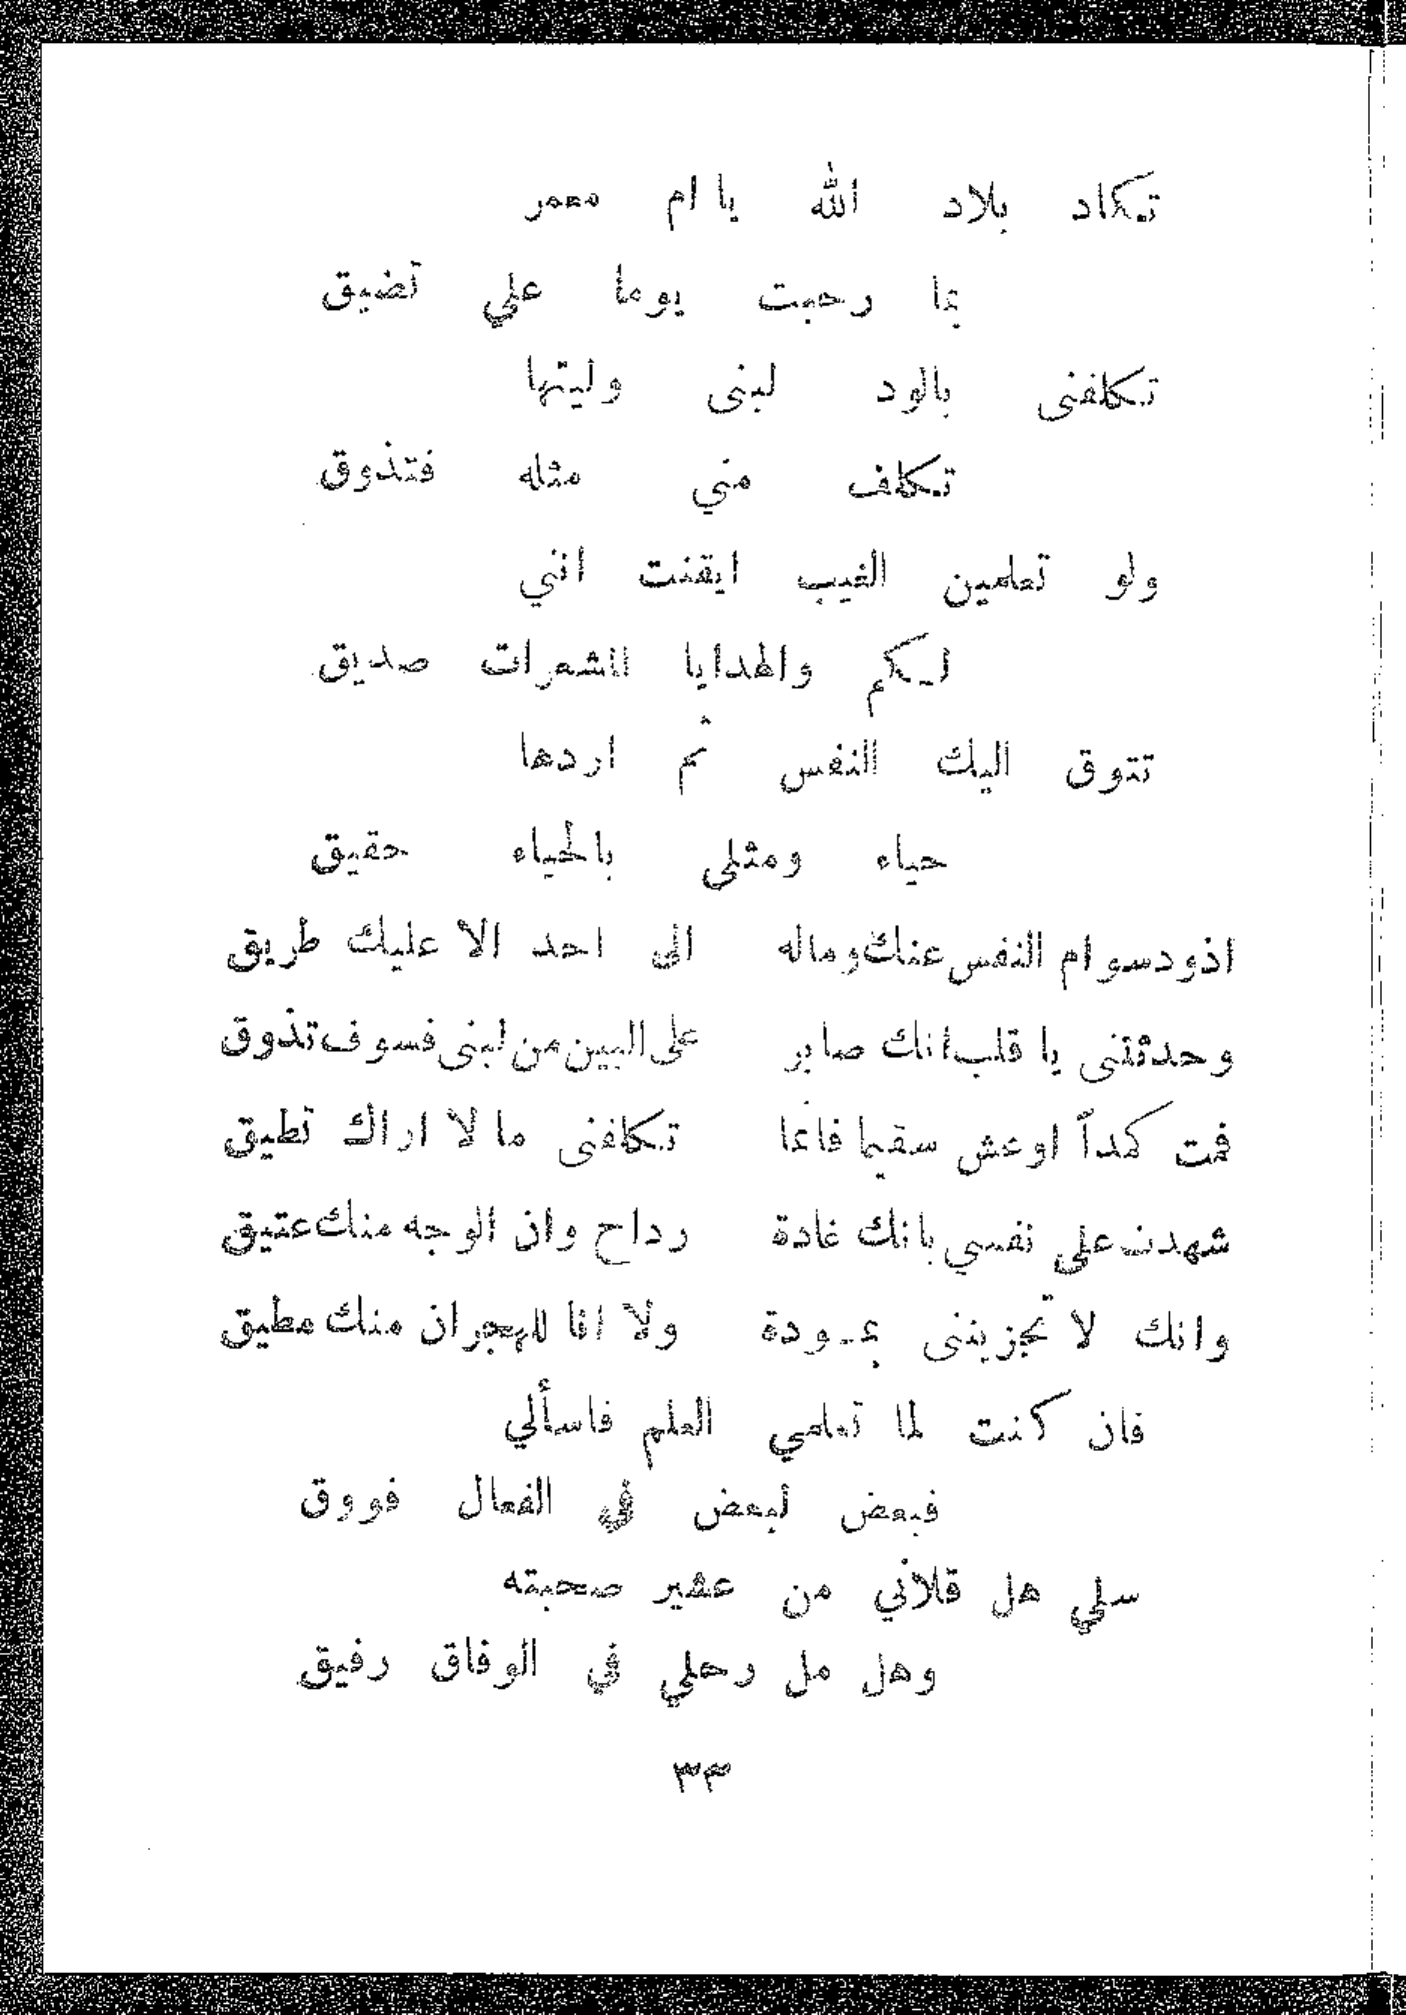 تكاد بلاد الله يا ام معمر
بما رحبت يوما علي تضيق
تكلفنى بالود لبنى وليتها
تكلف مني مثله فتذوق
ولو تعلمين الغيب ايقنت انني
لـكم والهدايا المشعرات صديق
تتوق اليك النفس ثم اردها
حياء ومثلى بالحياء حقيق
اذود سوام النفس عنك وماله الى احد الا عليك طريق
وحدثتنى يا قلب انك صابر على البين من لبنى فسوف تذوق
فمت كمداً او عش سقيما فانما تكلفنى ما لا اراك تطيق
شهدت على نفسي بانك غادة رداح وان الوجه منك عتيق
وانك لا تجزيننى بمـودة ولا انا للهجران منك مطيق
فان كنت لما تعلمي العلم فاسألي
فبعض لبعض في الفعال فووق
سلي هل قلاني من عشير صحبته
وهل مل رحلي في الوفاق رفيق
٣٣